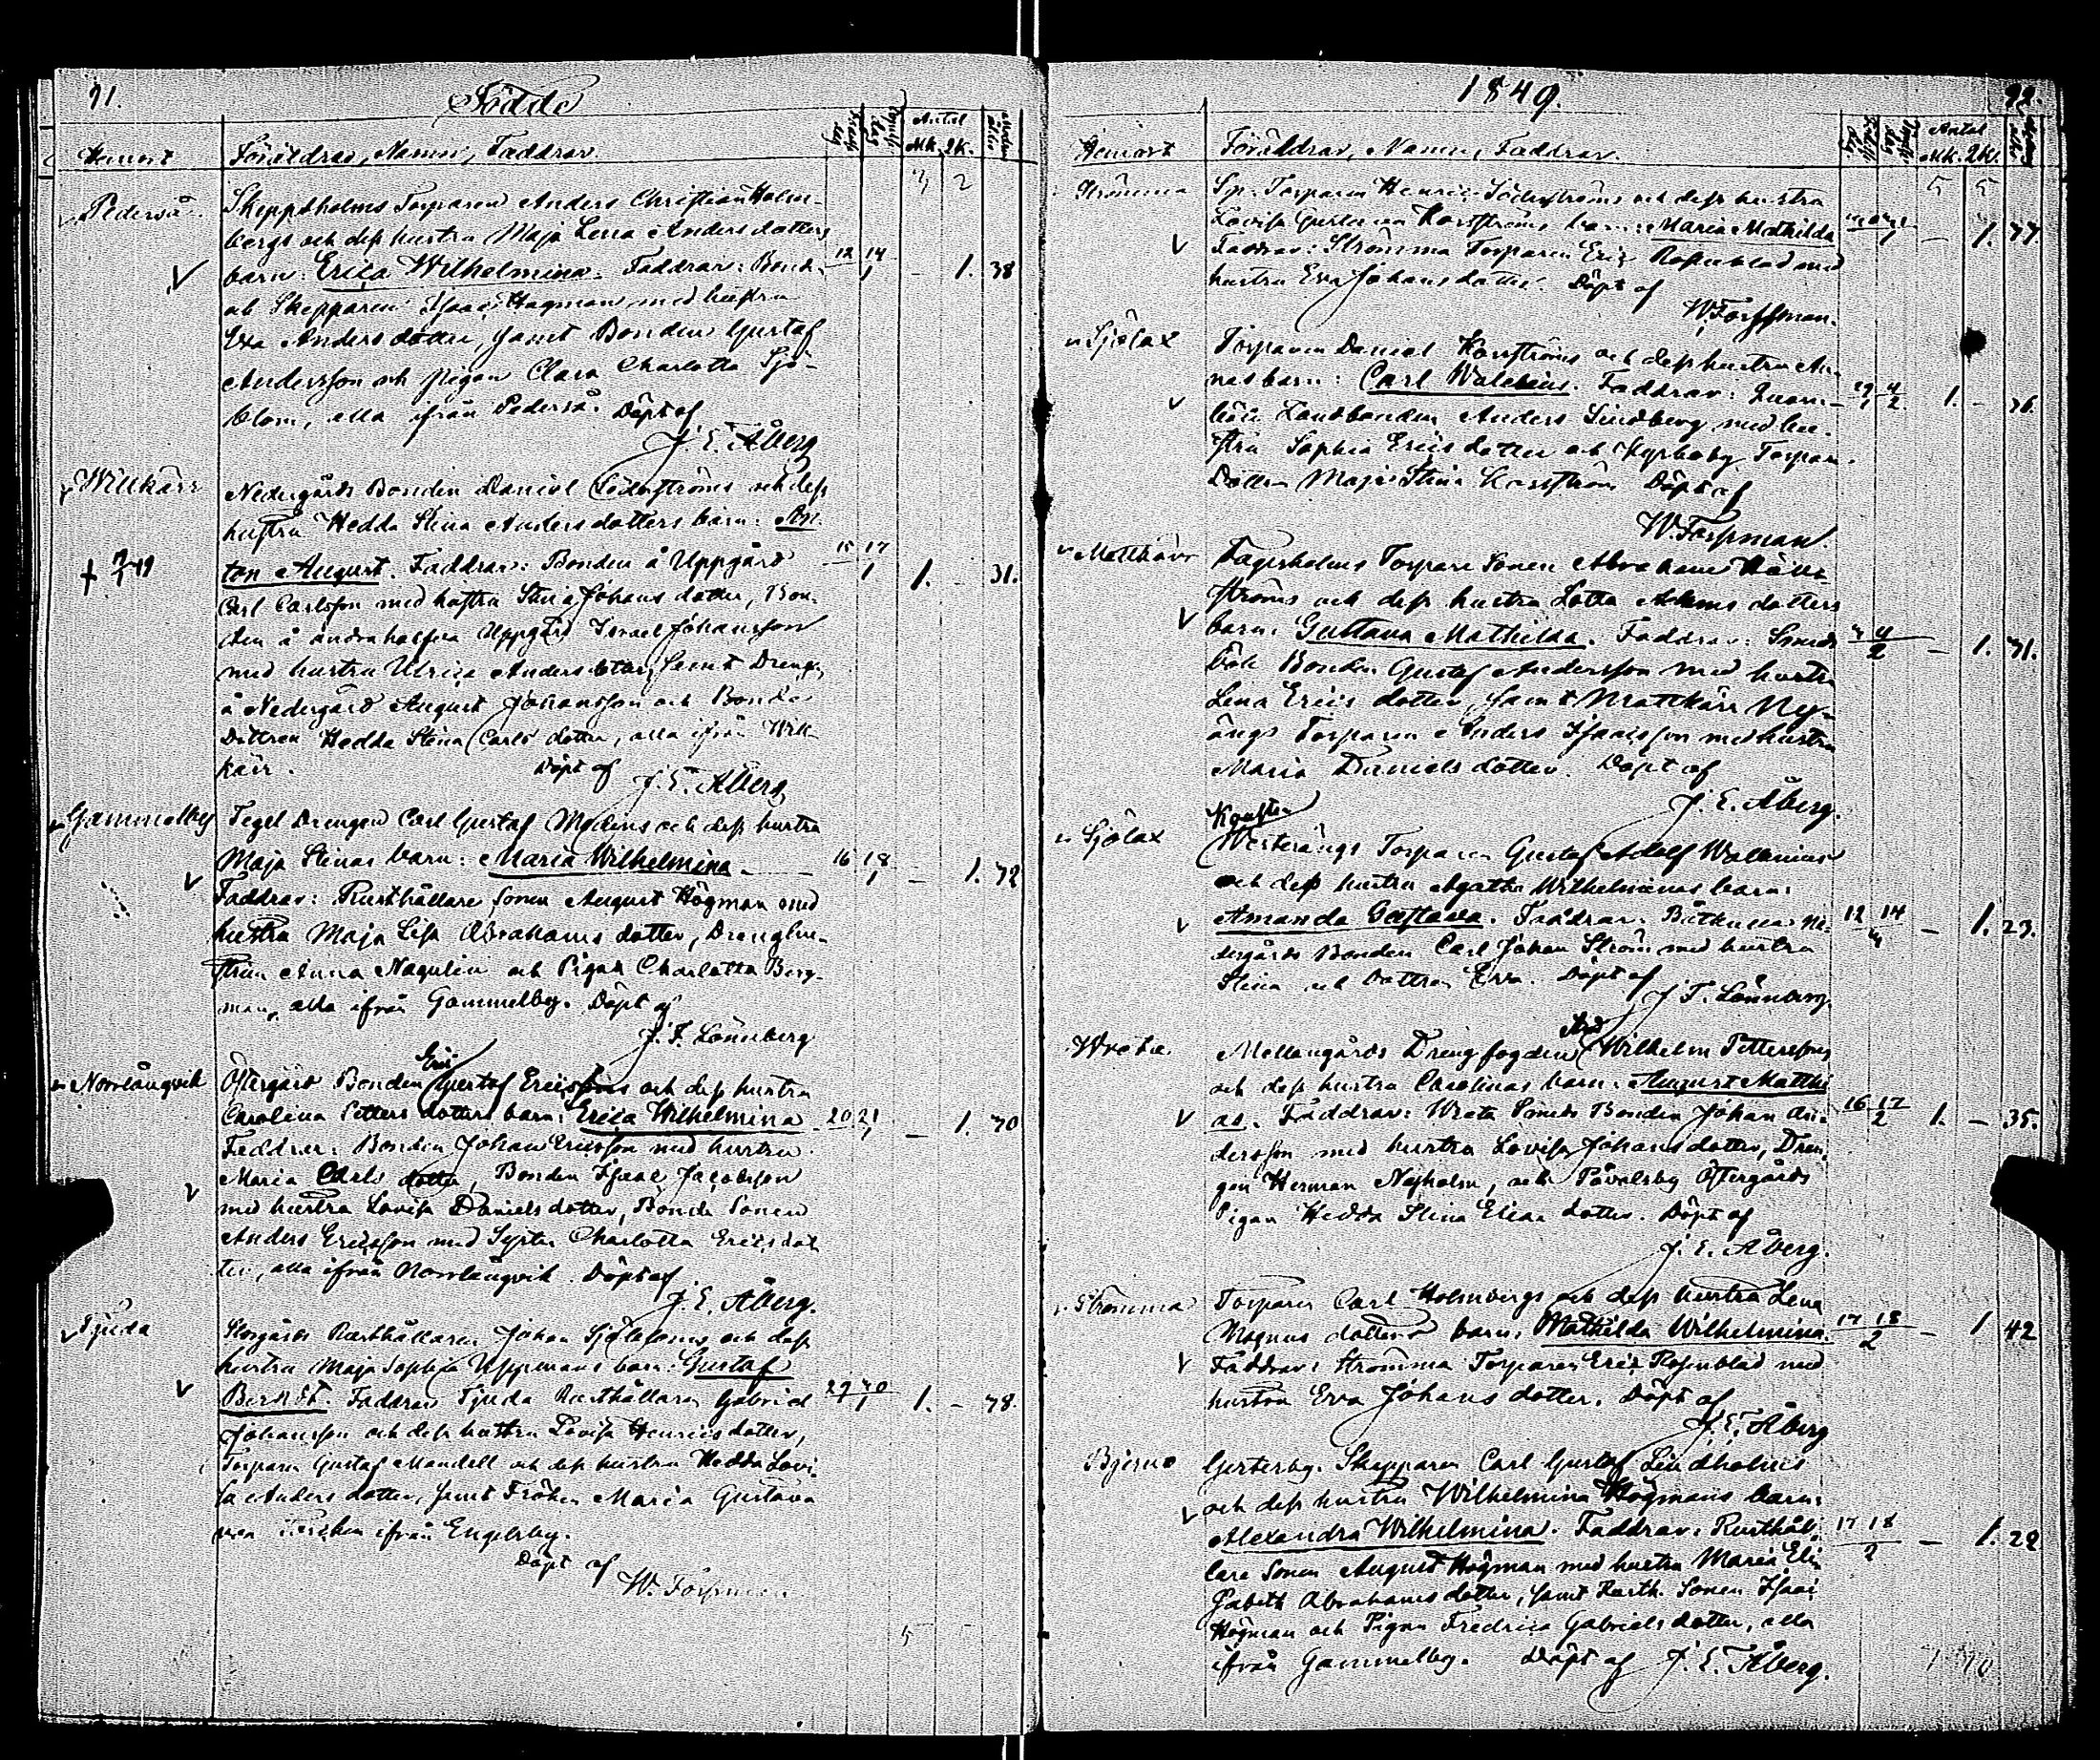 91.
Födde
Hemort
Föräldrar, Namn, Faddrar.
Antal
Mk. Qk.
3 2
Pederså
Skeppsholms Torparen Anders Christian Holm-
bergs och dess hustru Maja Lena Anders dotters
barn: Erica Wilhelmina. Faddrar: Bond. 12 14 1 - 1. 38
och Skepparen Isaac Hagman med hustru
Eva Anders dotter, samt Bonden Gustaf
Andersson och pigan Clara Charlotta Sjö-
blom, alla ifrån Pederså. Döpt af
J. E. Åberg
Willkärr
Nedergårds Bonden Daniel Söderströms och dess
hustru Hedda Stina Anders dotters barn: An-
ton August. Faddrar: Bonden å Uppgård 15 17 1 1. - 31.
Carl Carlsson med hustru Stina Johans dotter, Bon-
den å andra halfva Uppgård Israel Johansson
med hustru Ulrica Anders dotter, samt Dreng.
å Nedergård August Johansson och Bonde
Dottren Hedda Stina Carls dotter, alla ifrån Will-
kärr. Döpt af
J. E. Åberg
Gammelby
Tegel Drengen Carl Gustaf Modins och dess hustru
Maja Stinas barn: Maria Wilhelmina 16 18 1 - 1. 42
Faddrar: Rusthållare Sonen August Högman med
hustru Maja Lisa Abrahams dotter, Dreng hu-
strun Anna Nagulin och Pigan Charlotta Berg-
man, alla ifrån Gammelby. Döpt af
J. F. Lönnberg
Norrlångvik
Östergård Bonden Eric Gustaf Ericssons och dess hustru
Carolina Petters dotters barn: Erica Wilhelmina 20 21 1 - 1. 40
Faddrar: Bonden Johan Ericsson med hustru
Maria Carls dotter, Bonden Isaac Jacobsson
med hustru Lovisa Daniels dotter, Bonde Sonen
Anders Ericsson med Syster Charlotta Erics dot-
ter, alla ifrån Norrlångvik. Döpt af
J. E. Åberg.
Tjuda
Storgårds Rusthållaren Johan Sjöbloms och dess
hustru Maja Sophia Uppmans barn: Gustaf
Berndt. Faddrar Tjuda Rusthållaren Gabriel 29 30 1 1. - 48.
Johansson och dess hustru Lovisa Henrics dotter,
Torparen Gustaf Mandell och dess hustru Hedda Lovi-
sa Anders dotter, samt Fröken Maria Gustava
ifrån Engelsby.
Döpt af
W. Forssman
5
1849.
Hemort
Föräldrar, Namn, Faddrar.
Antal
Mk. Qk.
5 5
Strömma
Sp. Torparen Henric Söderströms och dess hustru
Lovisa Karlströms barn: Maria Mathilda - 1. 37.
Faddrar: Strömma Torparen Eric Rosenblad med
hustru Eva Johans dotter. Döpt af
W. Forssman.
Sjölax
Torparen Daniel Karlströms och dess hustru An-
nas barn: Carl Walenius. Faddrar: 29 4 1 2 1. - 36.
Landbonden Anders Lindberg med hu-
stru Sophia Erics dotter och Kyrkoby Torpare
Dottren Maja Stina Karlström Döpt af
W. Forssman.
Mattkärr
Fagerholms Torpare Sonen Abraham
ströms och dess hustru Lotta Adams dotters
barn: Gustava Mathilda. Faddrar: Smeds 3 4 2 - 1. 31.
böle Bonden Gustaf Andersson med hustru
Lena Erics dotter, samt Mattkärr Ny-
ängs Torparen Anders Isaacsson med hustru
Maria Daniels dotter. Döpt af
J. E. Åberg.
Sjölax
Westerängs Torparen Gustaf Adolf Wallenius
och dess hustru Agatha Wilhelminas barn:
Amanda Gustava. Faddrar: Båtkulla Ne- 12 14 - 1. 23.
dergårds Bonden Carl Johan Ström med hustru
Stina och Dottren Eva. Döpt af
J. F. Lönnberg.
Wreta
Mellangårds Drengfogden And Wilhelm Petterssons
och dess hustru Carolinas barn: August Matthi
as. Faddrar: Wreta Smeds Bonden Johan An- 16 17 2 1. - 35.
dersson med hustru Lovisa Johans dotter, Dren-
gen Herman Nyholm, och Påvalsby Östergårds
Pigan Hedda Stina Elias dotter. Döpt af
J. E. Åberg.
Strömma
Torparen Carl Holmbergs och dess hustru Lena
Magnus dotters barn: Mathilda Wilhelmina. 17 18 2 - 1 42
Faddrar: Strömma Torparen Eric Rosenblad med
hustru Eva Johans dotter. Döpt af
J. E. Åberg
Bjerno
Gersterby. Skepparen Carl Gustaf Lindholms
och dess hustru Wilhelmina Högmans barn:
Alexandra Wilhelmina. Faddrar: Rusthål- 17 18 2 - 1. 22
lare Sonen August Högman med hustru Maria Eli-
sabeth Abrahams dotter, samt Rusth. Sonen Isaac
Högman och Pigan Fredrica Gabriels dotter, alla
ifrån Gammelby. Döpt af J. E. Åberg.
7 10